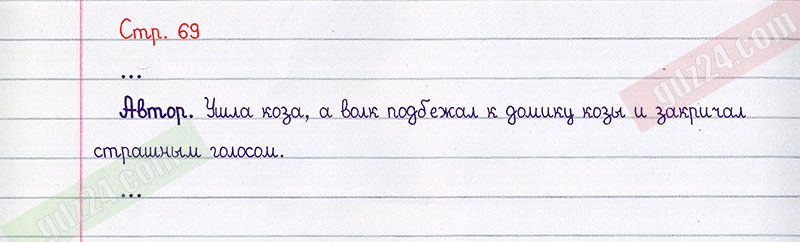 Стр. 69
...
Автор. Ушла коза, а волк подбежал к домику козы и закричал
страшным голосом.
...
gdz24.com
gdz24.com